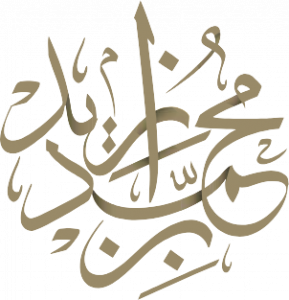 محمد بن زايد